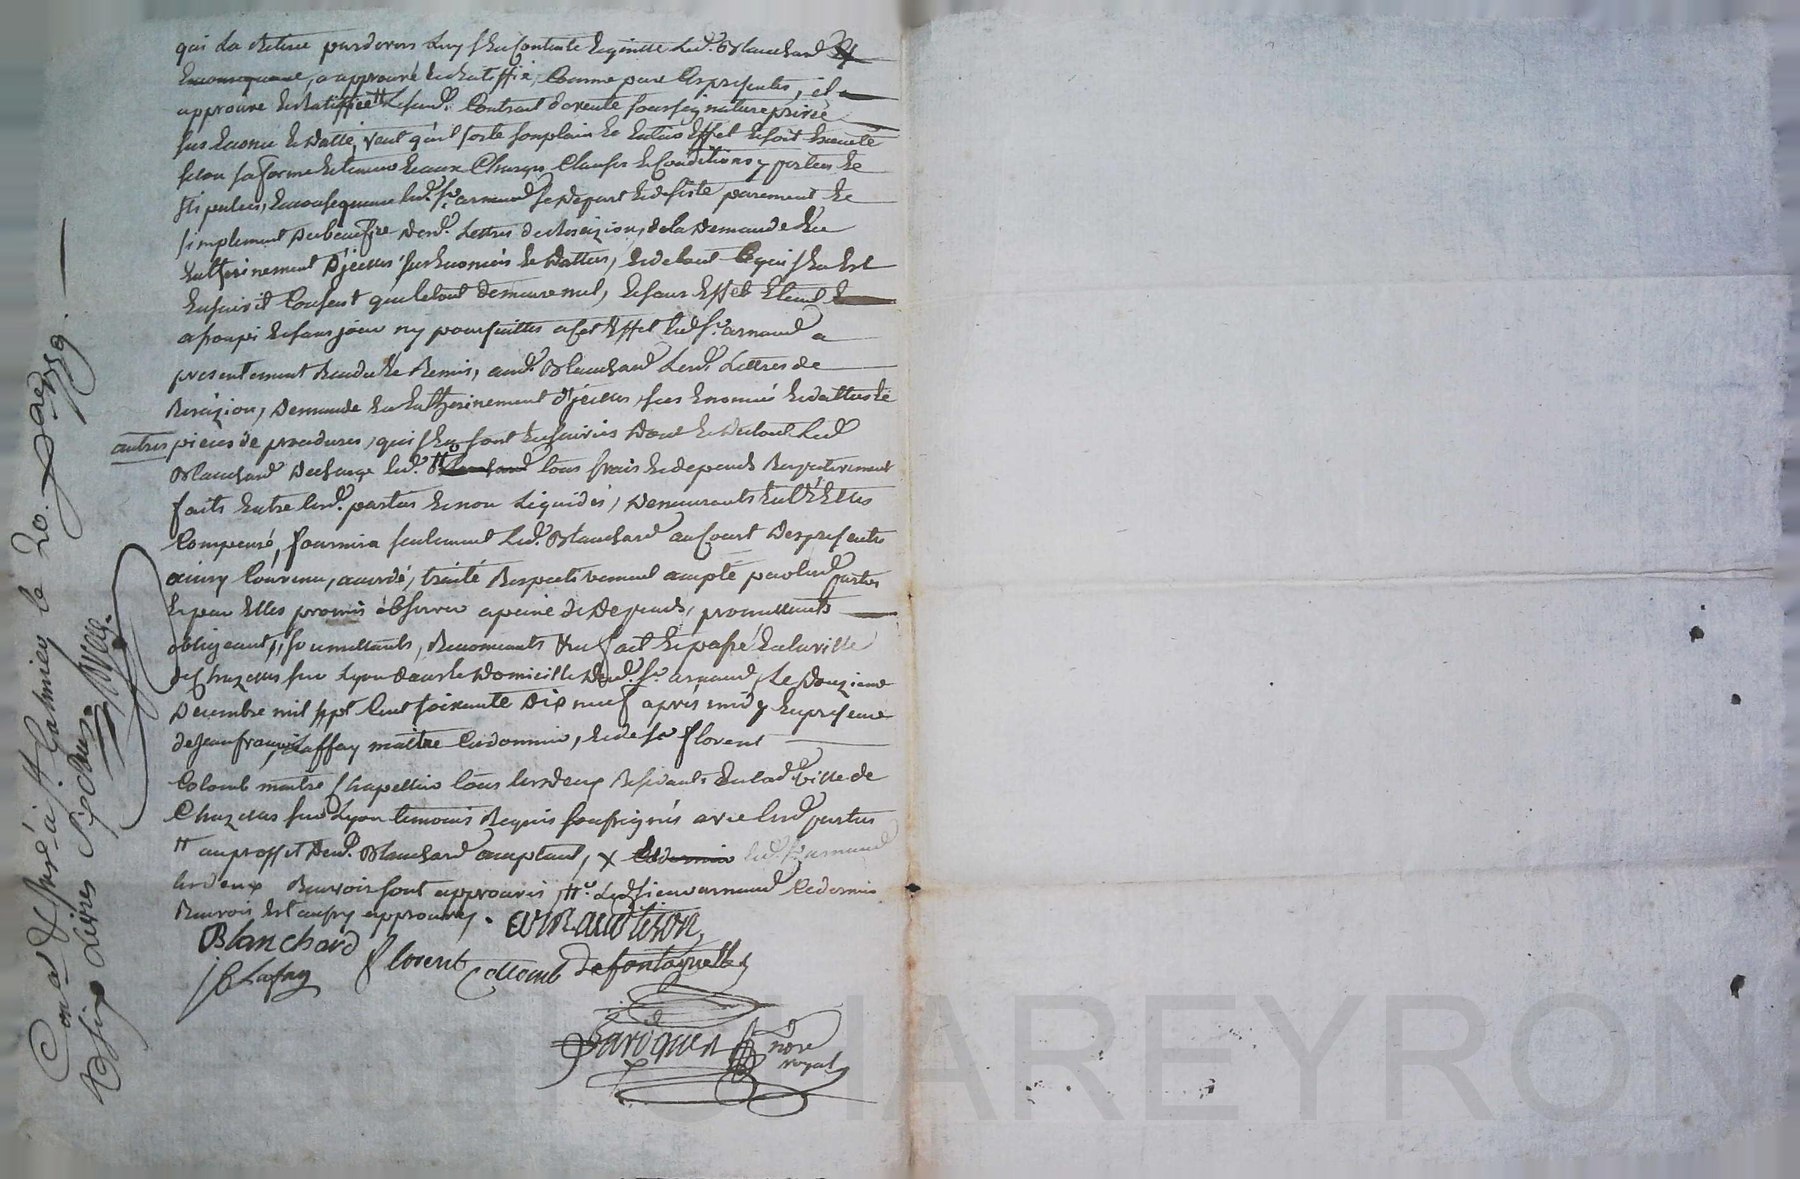 qui La Retire pardevers Luy sen Contente Equitte Led. Blanchard Et
Enconsequance, a approuvé Eratiffié, Comme par Cespresentes, il a
approuve Eratiffie Lesusd. Contrant devente sousseignature privée
sus Enoncé Edatté, veut quil sorte sonplain Et Entier Effet Esoit Executé
selon sa forme Eteneur Eaux Charges Clauses Econditions y portées Et
stipulées, Enconsequance led. sr. arnaud se depart Edesiste purement Et
simplement dubenefice desd. Lettres de Resizion, dela demande En
Entherinement d'jcelles susEnoncés Edattés, Edetout Cequi sen Est
Ensuivit Consent queletout demeure nul, Esans Effet Eteint Et
asoupi Esans jour ny poursuittes acet Effet led. sr. arnaud a
presentement Rendu Et Remis, aud. Blanchard Lesd. Lettres de
Resizion, demande En Entherinement d'jcelles, sus Enoncé Edattés Et
autres pieces de procedures, qui sen sont Ensuivies dont Edutout Led.
Blanchard decharge led. tous frais Edepends Respectivement
faits Entre lesd. parties Enon Liquidés, demeurants Entre Elles
Compensé, fournira seulement Led. Blanchard au Cout despresentes
ainsy Convenu, accordé, traité Respectivement accepté par lesd. parties
Epar Elles promis observer apeine de depends, promettants
obligeants, soumettants, Renonceants &c. fait Epassé Enlaville
de Chazelles sur Lyon dans le domicille dud. sr. arnaud, Le douzieme
decembre mil sept Cent soixante dix neuf après midy Enpresence
dejean francois Laffay maitre Cordonnier, Ede sr florent
Colomb maitre Chapellier tous lesdeux Residants Enlad. ville de
Chazelles sur Lyon temoins Requis soussignés avec lesd. parties
au proffit dud. Blanchard acceptant, x led. sr. arnaud
lesdeux Renvois sont approuvés, Ledsieur arnaud Cedernier
Renvois Est aussy approuvé.
Blanchard ARNaud tison
J B Lafay florent Collomb defontaynelle
Baroquen nore
royal
Con.lé & Inst.é a st. Galmier le 20. Xbre 1779.
Reçu six Livres